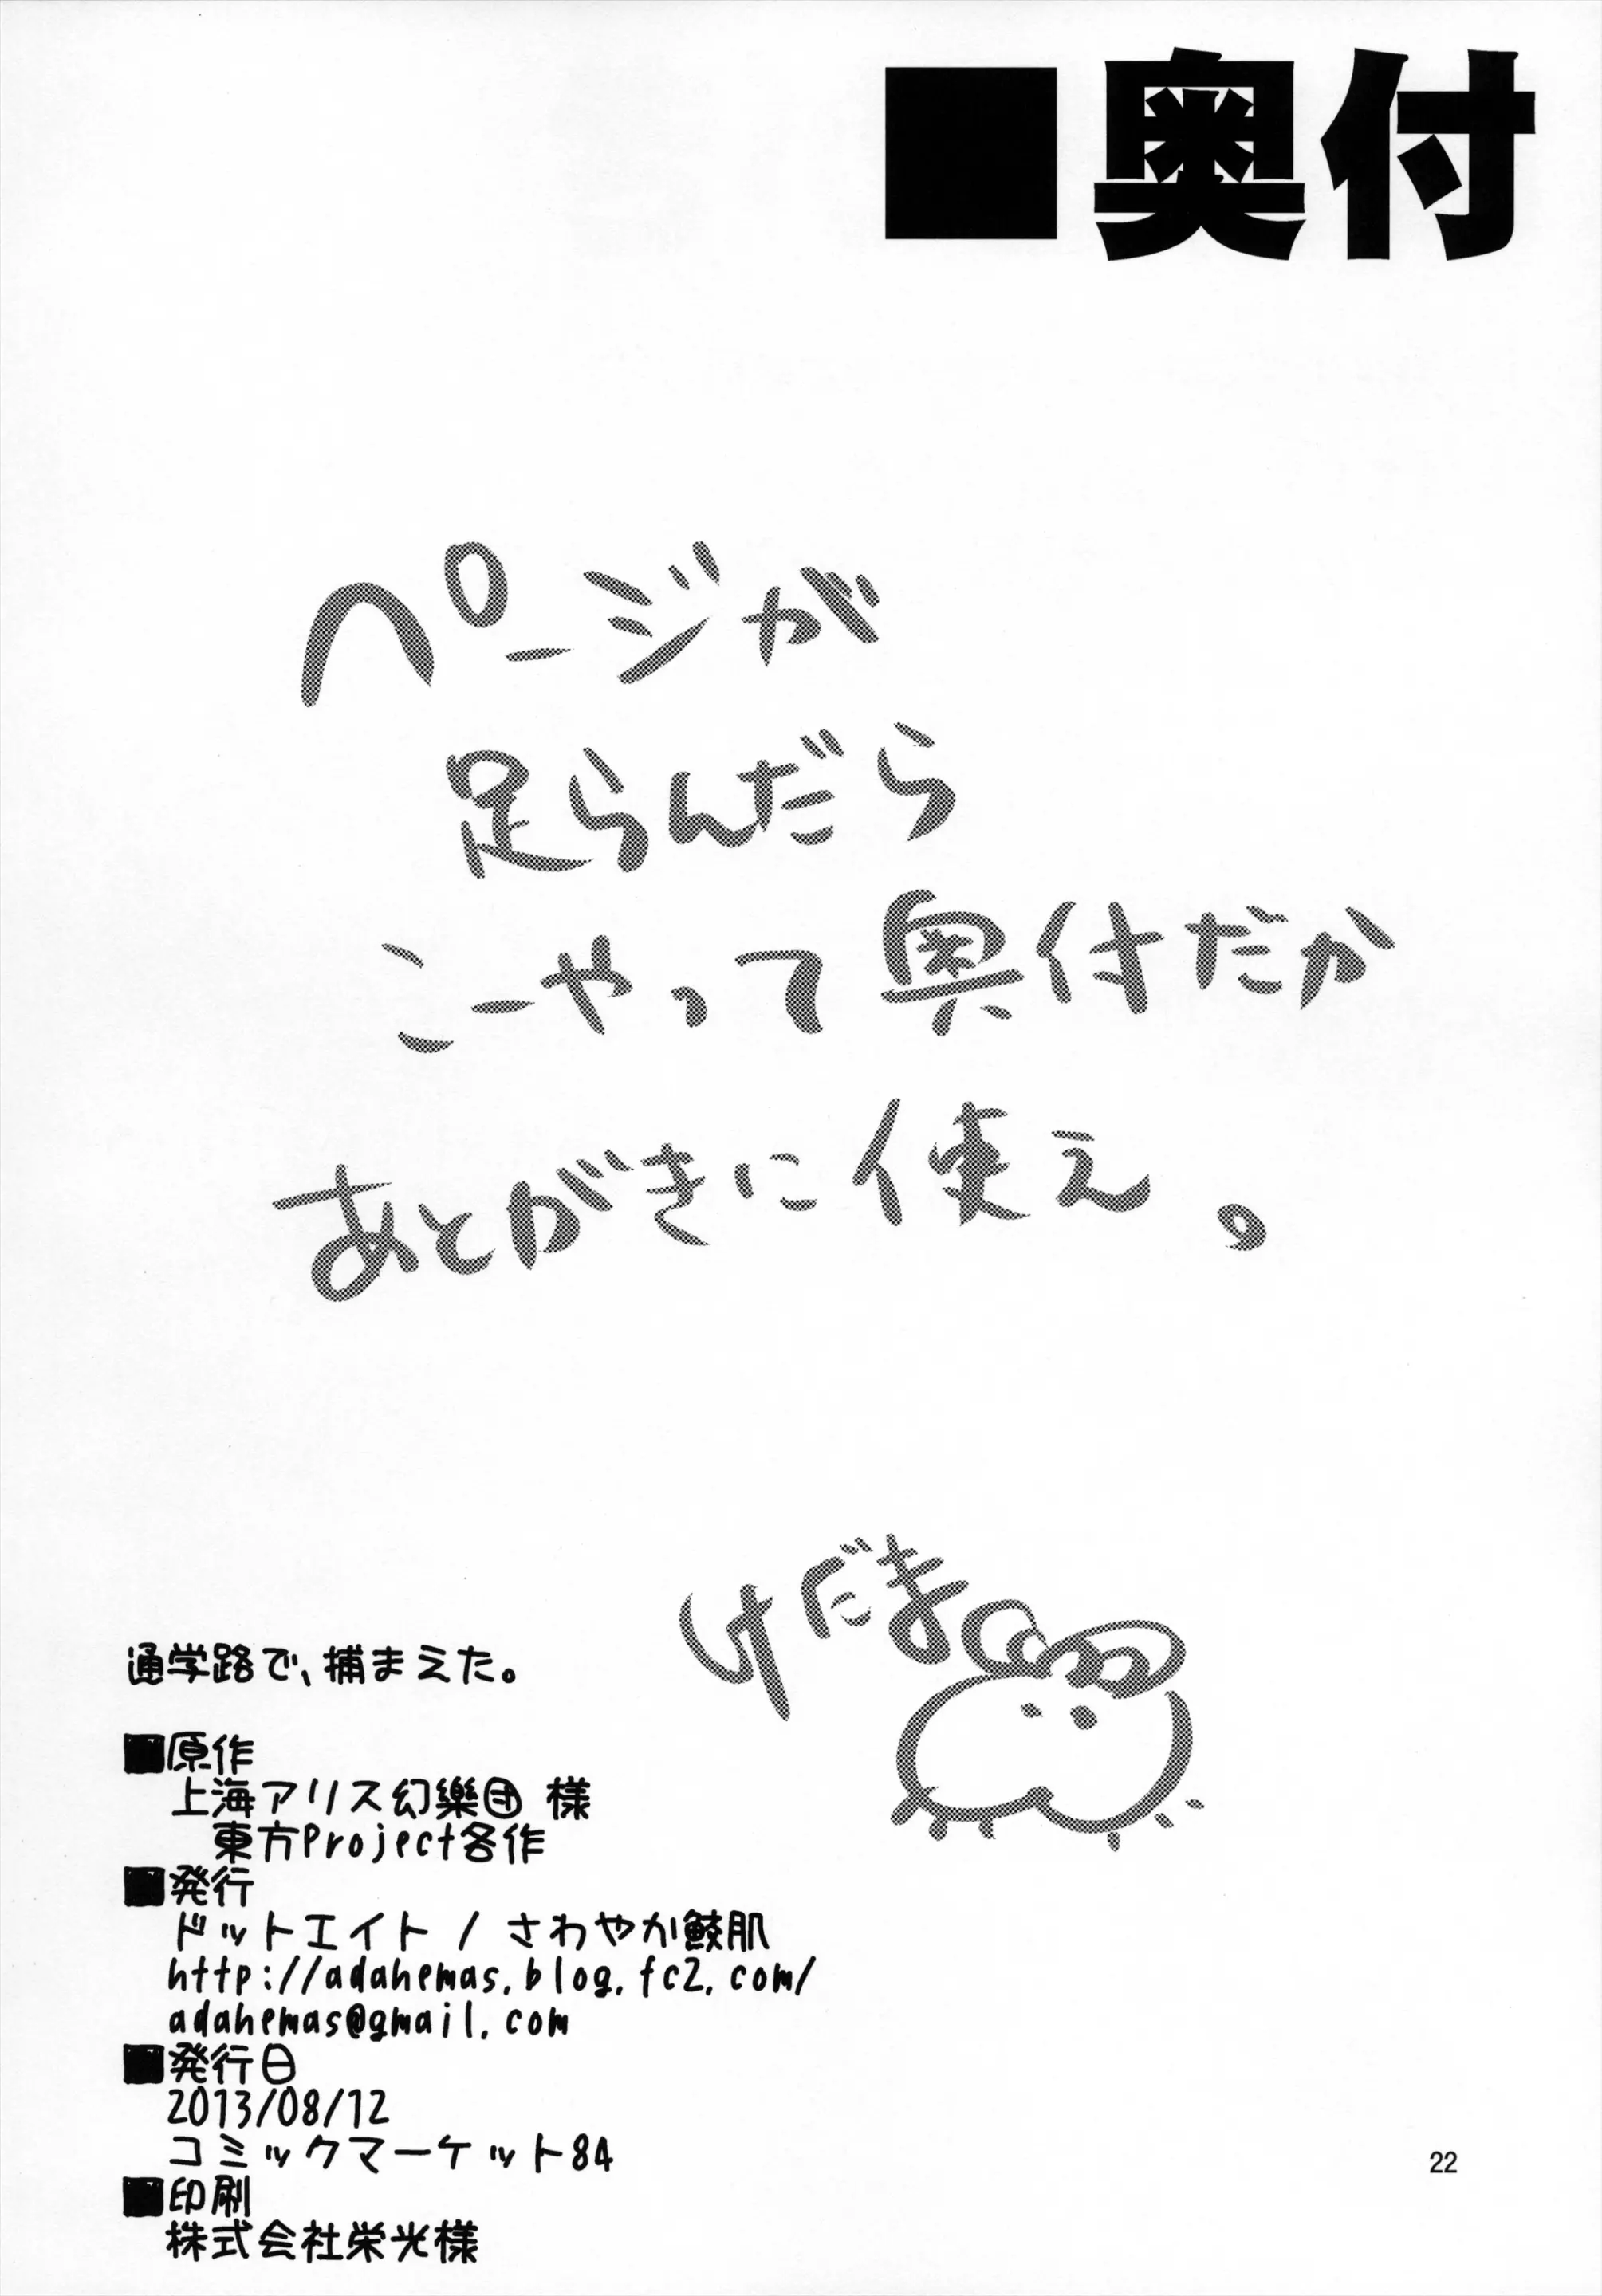 ■奥付
ページが
足らんだら
こーやって奥付だか
あとがきに使え。
けだま
通学路で、捕まえた。
■原作
上海アリス幻樂団 様
東方Project各作
■発行
ドットエイト / さわやか鮫肌
http://adahemas.blog.fc2.com/
adahemas@gmail.com
■発行日
2013/08/12
コミックマーケット84
■印刷
株式会社栄光様
22